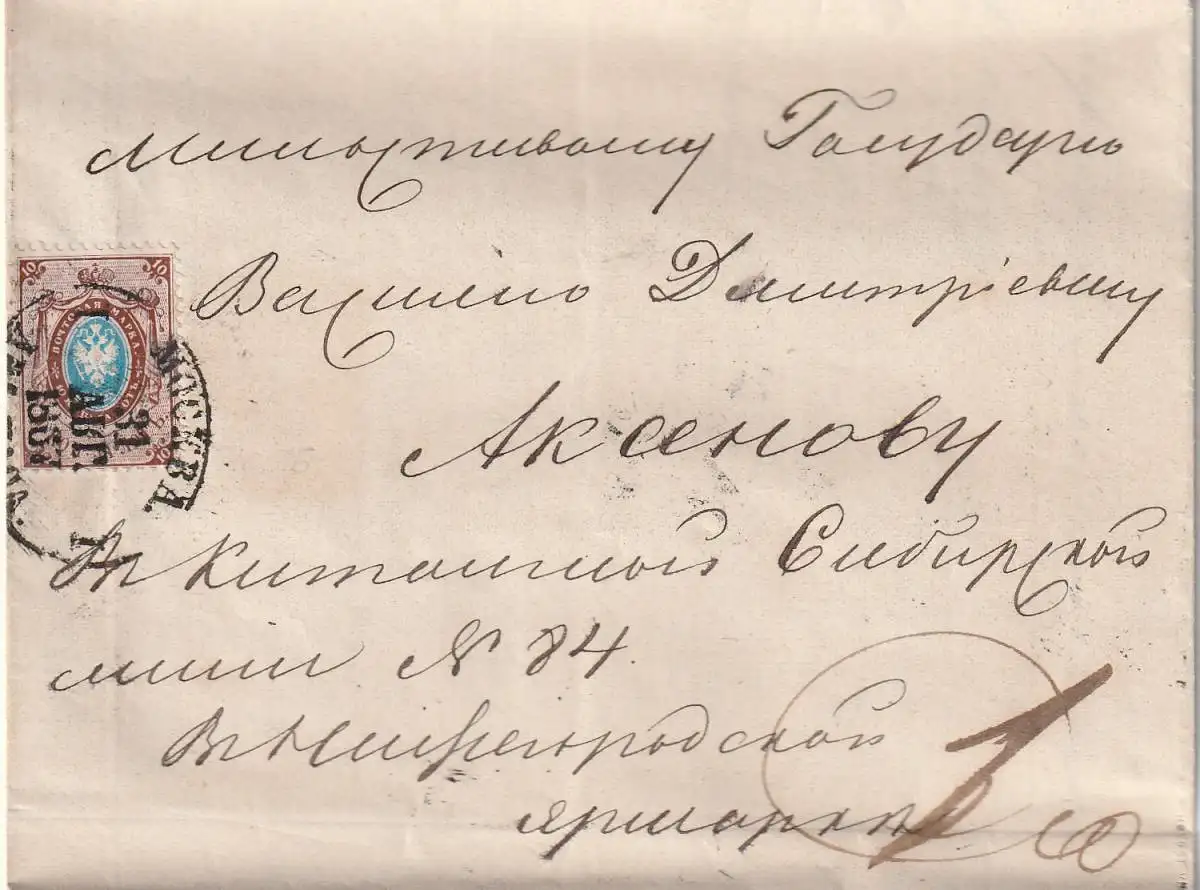 Милостивому Государю
Василию Дмитріевичу
Аксенову
Въ Китайской Сибирской
линии № 84.
Въ Нижегородской
ярмаркѣ
1
10 10
ПОЧТОВАЯ МАРКА
10
МОСКВА
31
АВГ.